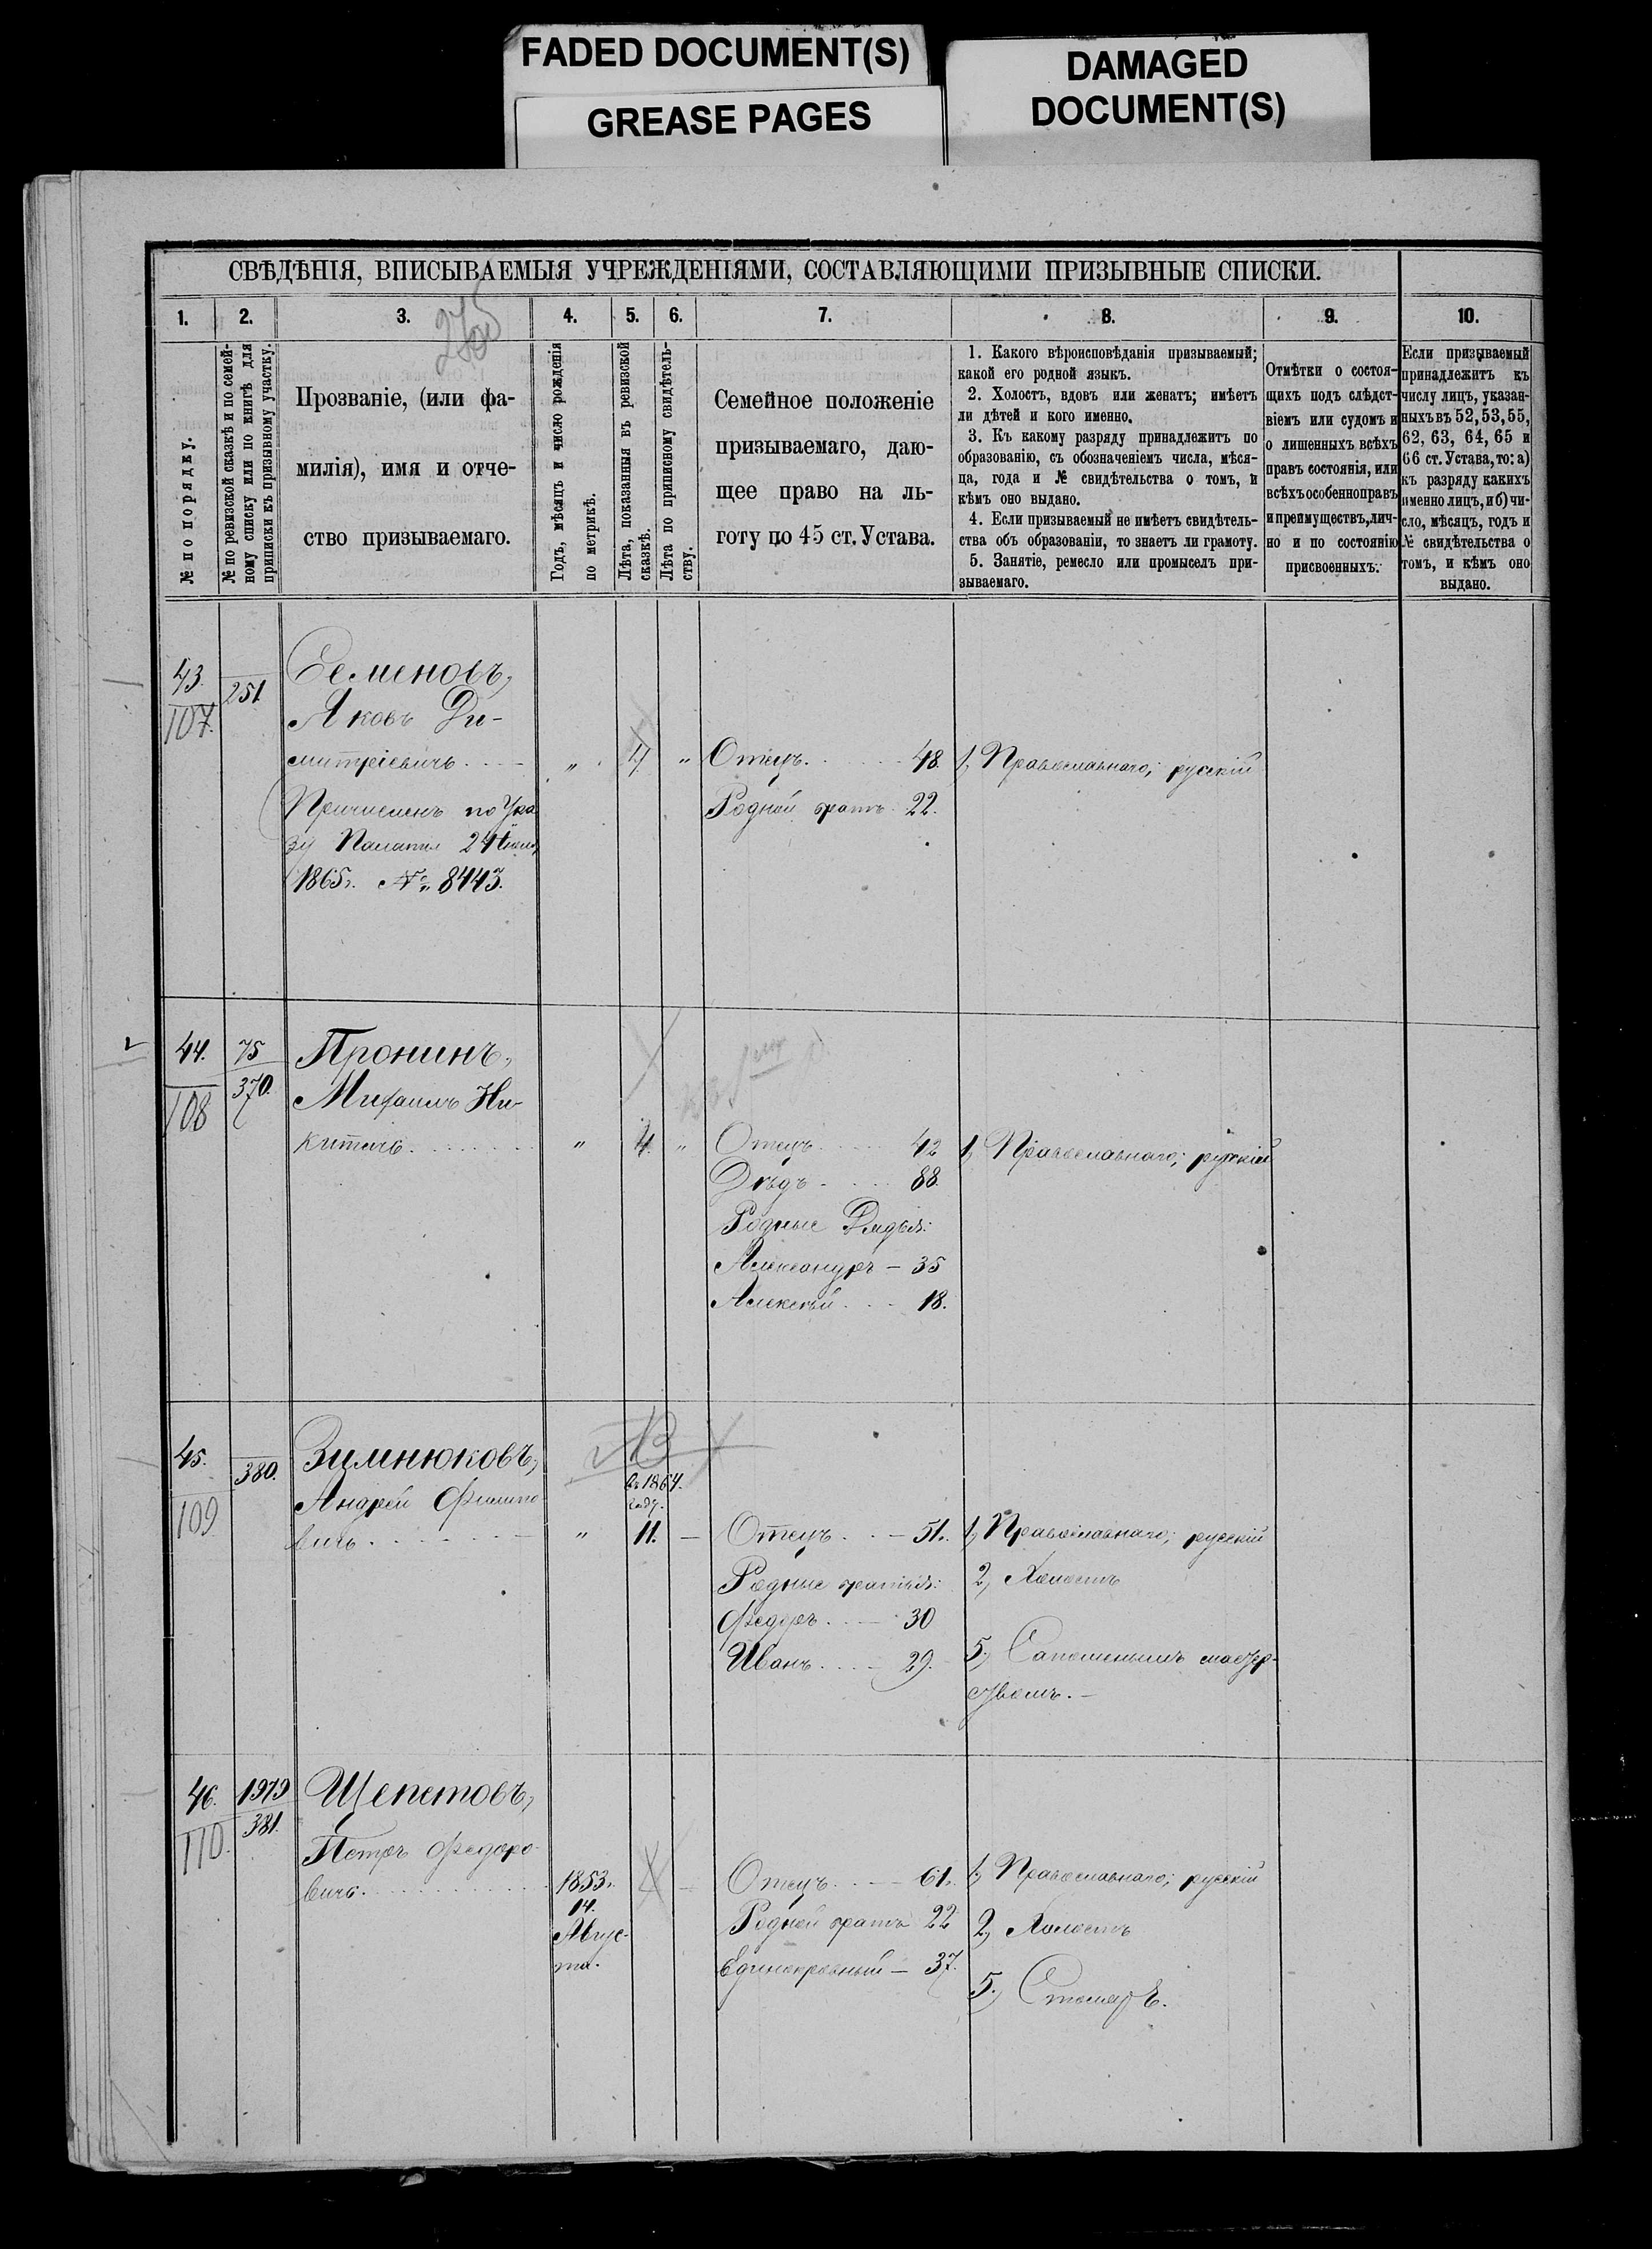 FADED DOCUMENT(S)
GREASE PAGES
DAMAGED
DOCUMENT(S)
СВѢДѢНІЯ, ВПИСЫВАЕМЫЯ УЧРЕЖДЕНІЯМИ, СОСТАВЛЯЮЩИМИ ПРИЗЫВНЫЕ СПИСКИ.
1. 2. 3. 4. 5. 6. 7. 8. 9. 10.
№ по порядку.
№ по ревизской сказкѣ и по семей-
ному списку или по книгѣ для
приписки къ призывному участку.
Прозваніе, (или фа-
милія), имя и отче-
ство призываемаго.
Годъ, мѣсяцъ и число рожденія
по метрикѣ.
Лѣта, показанныя въ ревизской
сказкѣ.
Лѣта по приписному свидѣтель-
ству.
Семейное положеніе
призываемаго, даю-
щее право на ль-
готу по 45 ст. Устава.
1. Какого вѣроисповѣданія призываемый;
какой его родной языкъ.
2. Холостъ, вдовъ или женатъ; имѣетъ
ли дѣтей и кого именно.
3. Къ какому разряду принадлежитъ по
образованію, съ обозначеніемъ числа, мѣся-
ца, года и № свидѣтельства о томъ, и
кѣмъ оно выдано.
4. Если призываемый не имѣетъ свидѣтель-
ства объ образованіи, то знаетъ ли грамоту.
5. Занятіе, ремесло или промыселъ при-
зываемаго.
Отмѣтки о состоя-
щихъ подъ слѣдст-
віемъ или судомъ и
о лишенныхъ всѣхъ
правъ состоянія, или
всѣхъ особенно правъ
и преимуществъ, лич-
но и по состоянію
присвоенныхъ.
Если призываемый
принадлежитъ къ
числу лицъ, указан-
ныхъ въ 52, 53, 55,
62, 63, 64, 65 и
66 ст. Устава, то: а)
къ разряду какихъ
именно лицъ, и б) чи-
сло, мѣсяцъ, годъ и
№ свидѣтельства о
томъ, и кѣмъ оно
выдано.
43.
107.
251
Семеновъ,
Яковъ Ди-
митріевичъ
Причисленъ по Ука
зу Палаты 24 Іюля
1865г. № 8443.
" 4 "
Отецъ 48.
Родной братъ 22.
1, Православнаго; русскій
44.
108
75
370.
Пронинъ,
Михаилъ Ни-
китичъ
" 4. "
Отецъ 42
Дѣдъ 88.
Родные Дядья:
Александръ – 35
Алексѣй 18.
1, Православнаго; русскій
45.
109
380.
Зимнюковъ,
Андрей Филиппо
вичъ
Въ 1864.
году.
" 11. –
Отецъ – 51.
Родные братья:
Федоръ – 30
Иванъ – 29.
1, Православнаго; русскій
2, Холостъ
5, Сапожнымъ мастер-
ствомъ. –
46.
110.
1979
381.
Щепетовъ,
Петръ Федоро-
вичъ.
1853г.
14.
Авгус-
та.
4
Отецъ – 61.
Родной братъ 22
Единокровный – 37.
1, Православнаго; русскій
2, Холостъ
5, Столяръ.